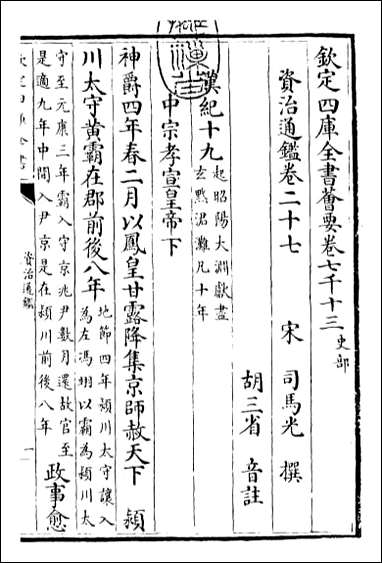 欽定四庫全書薈要卷七千十三 史部
資治通鑑卷二十七
宋 司馬光 撰
胡三省 音註
漢紀十九 起昭陽大淵獻盡玄黓涒灘凡十年
中宗孝宣皇帝下
神爵四年春二月以鳳皇甘露降集京師赦天下 潁
川太守黃霸在郡前後八年 地節四年潁川太守讓入為左馮翊以霸為潁川太
守至元康三年霸入守京兆尹數月還故官至是適九年中間入尹京是在潁川前後八年 政事愈
資治通鑑
一